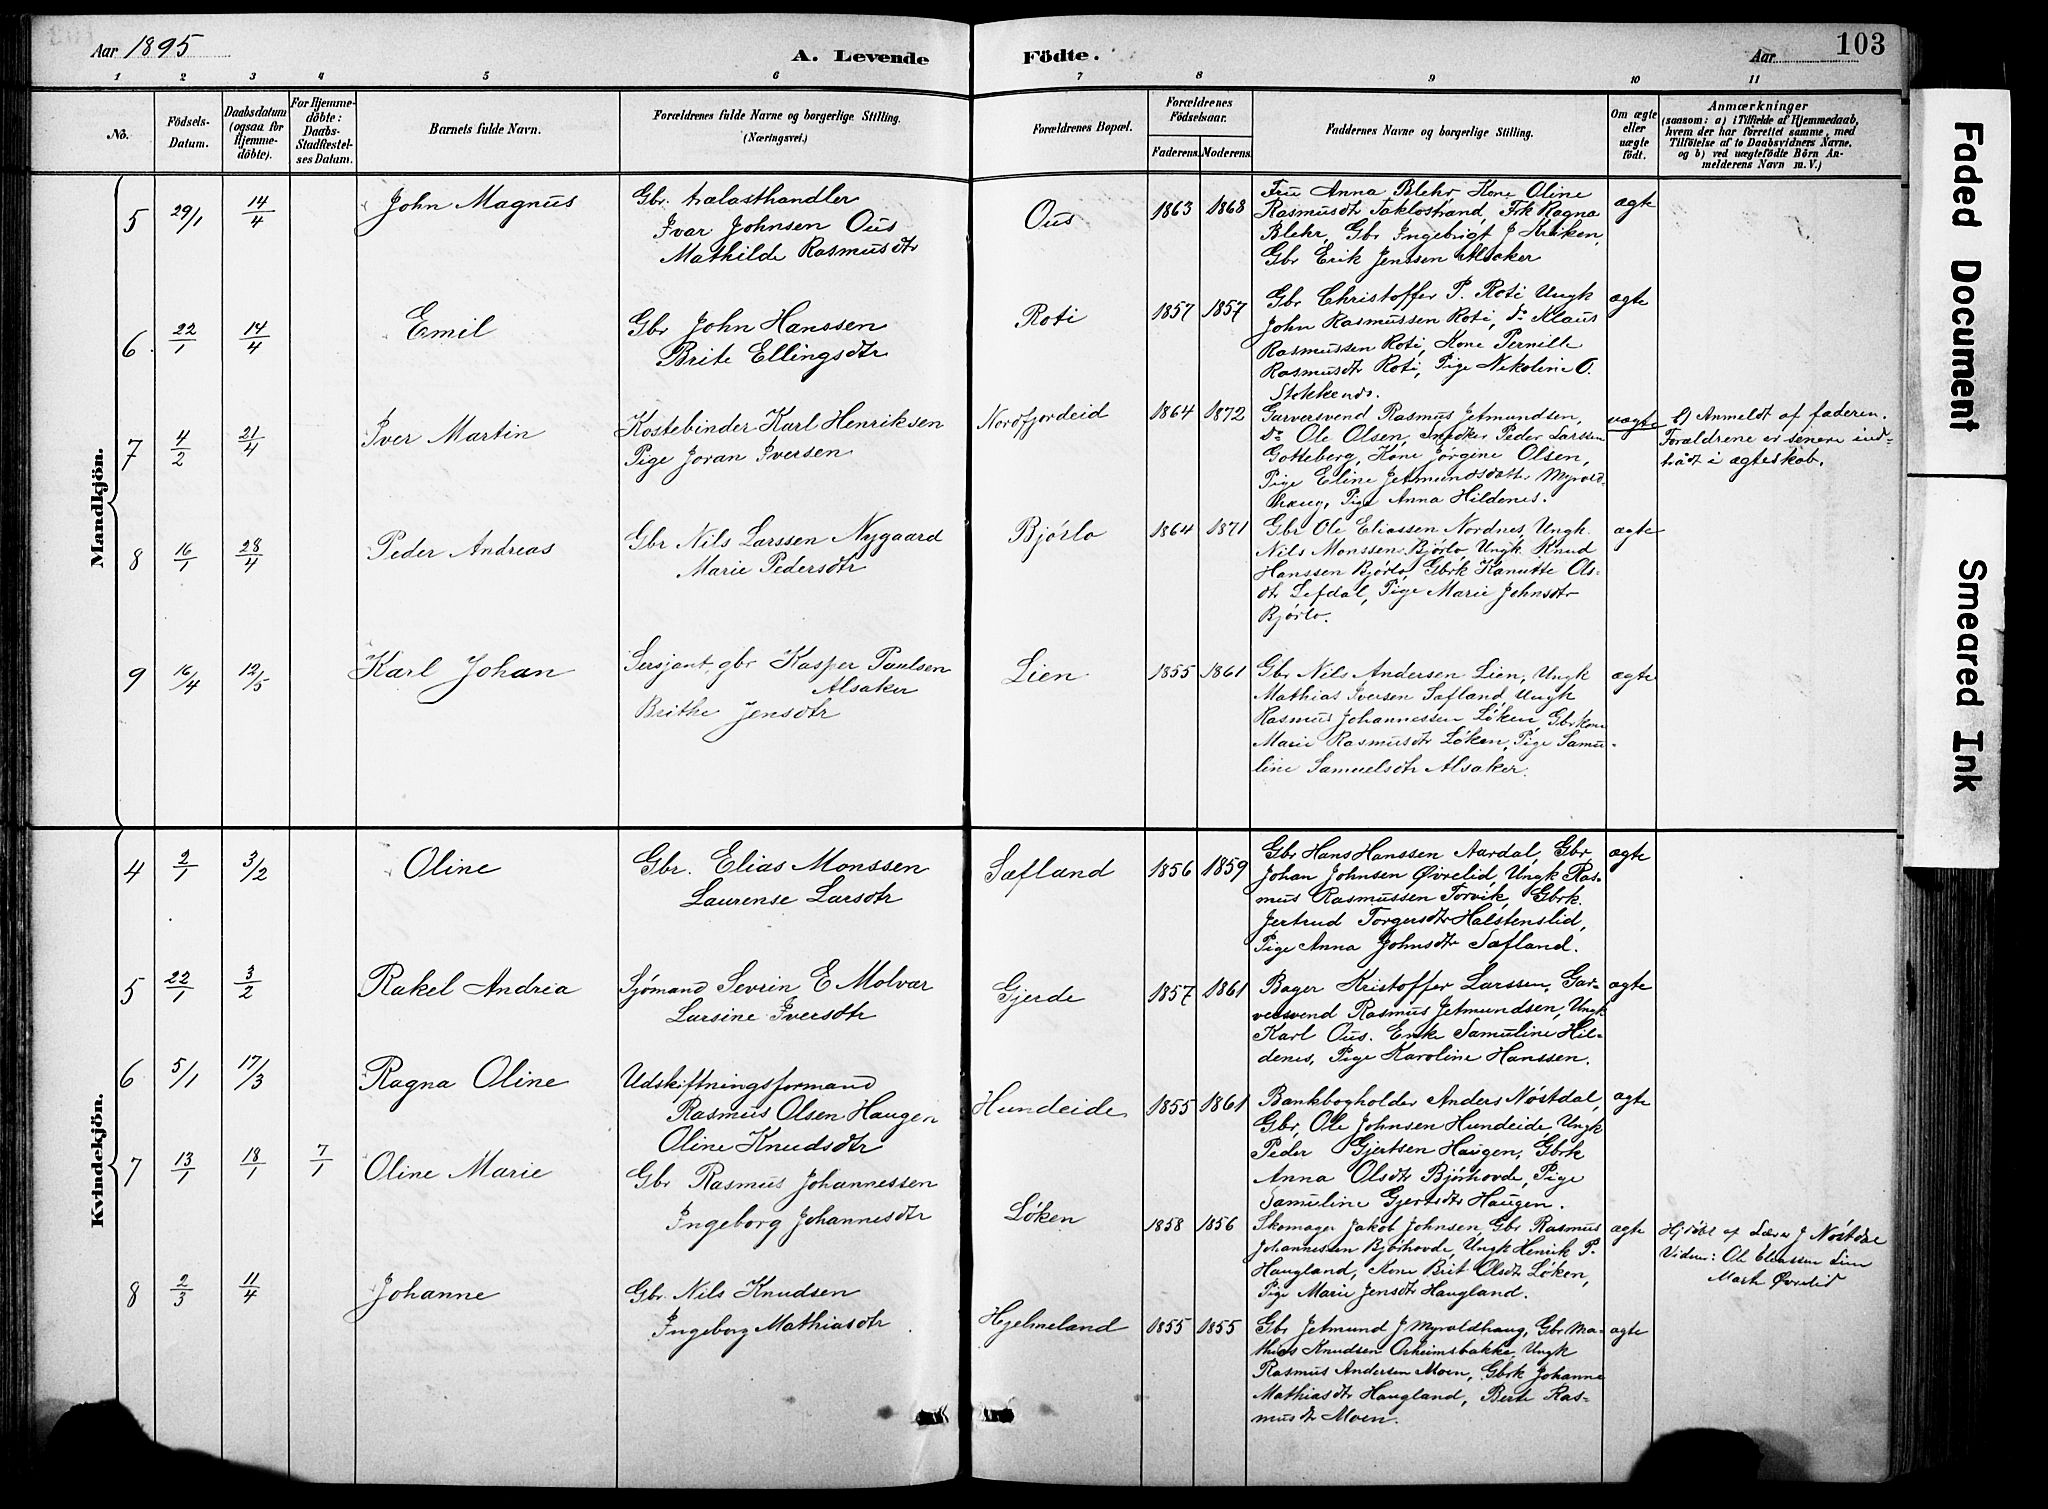 Aar 1895
A. Levende Födte.
Aar
103
1 2 3 4 5 6 7 8 9 10 11
No.
Födsels-Datum.
Daabsdatum (ogsaa for Hjemmedöbte).
For Hjemmedöbte: Daabs-Stadfestelses Datum.
Barnets fulde Navn.
Forældrenes fulde Navne og borgerlige Stilling. (Næringsvei.)
Forældrenes Bopæl.
Forældrenes Födselsaar.
Faderens. Moderens.
Faddernes Navne og borgerlige Stilling.
Om ægte eller uægte födt.
Anmærkninger
(saasom: a) i Tilfælde af Hjemmedaab, hvem der har forrettet samme, med Tilföielse af to Daabsvidners Navne, og b) ved uægtefödte Börn Anmelderens Navn m. V.)
Mandkjön.
5 29/1 14/4 John Magnus
Gbr. trælasthandler
Ivar Johnsen Ous
Mathilde Rasmusdtr
Ous 1863 1868
Fru Anna Blehr, Kone Oline
Rasmusdtr Taklostrand, Frk Ragna
Blehr, Gbr Ingebrigt J
Gbr Erik Jenssen Alsaker
ægte
6 22/1 14/4 Emil
Gbr John Hanssen
Brite Ellingsdtr
Roti 1857 1857
Gbr Christoffer P. Roti Ungk
John Rasmussen Roti, do Klaus
Rasmussen Roti, Kone Pernille
Rasmusdtr Roti, Pige Nikoline O.
Stokkends.
ægte
7 4/2 21/4 Iver Martin
Kostebinder Karl Henriksen
Pige Joran Iversen
Nordfjordeid 1864 1872
Garversvend Rasmus Jetmundsen,
do Ole Olsen, Snedker Peder Larssen
Gotteberg, Kone Jørgine Olsen,
Pige Eline Jetmundsdatter Myrold-
haug, Pige Anna Hildenes.
uægte
b) Anmeldt af faderen.
Forældrene er senere ind-
trådt i ægteskab.
8 16/1 28/4 Peder Andreas
Gbr Nils Larssen Nygaard
Marie Pedersdtr
Bjørlo 1864 1871
Gbr Ole Eliassen Nordnes, Ungk
Nils Monssen Bjørlo Ungk Knud
Hanssen Bjørlo, Gbrk Kanutte Ols-
dtr Lefdal, Pige Marie Johnsdtr
Bjørlo.
ægte
9 16/4 12/5 Karl Johan
Sersjant, gbr Kasper Paulsen
Alsaker
Brithe Jensdtr
Lien 1855 1861
Gbr Nils Andersen Lien, Ungk
Mathias Iversen Sæfland Ungk
Rasmus Johannessen Løken, Gbrkone
Marie Rasmusdtr Løken, Pige Samu-
line Samuelsdtr Alsaker.
ægte
Kvindekjön.
4 2/1 3/2 Oline
Gbr. Elias Monssen
Laurense Larsdtr
Sæfland 1856 1859
Gbr Hans Hanssen Aardal, Gbr,
Johan Johnsen Øvrelid Ungk Ras-
mus Rasmussen Torvik, Gbrk.
Jertrud Torgersdtr Halstenslid,
Pige Anna Johnsdtr Sæfland.
ægte
5 22/1 3/2 Rakel Andrea
Sjømand Sevrin E Molvær
Larsine Iversdtr
Gjerde 1857 1861
Bager Kristoffer Larssen, Gar-
versvend Rasmus Jetmundsen, Ungk
Karl Ous. Enke Samuline Hil-
denes, Pige Karoline Hanssen.
ægte
6 5/1 17/3 Ragna Oline
Udskiftningsformand
Rasmus Olsen Haugen
Oline Knudsdtr
Hundeide 1855 1861
Bankbogholder Anders Nøstdal,
Gbr, Ole Johnsen Hundeide Ungk
Peder Gjertsen Haugen, Gbrk
Anna Olsdtr Bjørhovde, Pige
Samuline Gjertsdtr Haugen.
ægte
7 13/1 18/1 7/1 Oline Marie
Gbr Rasmus Johannessen
Ingeborg Johannesdtr
Løken 1858 1856
Skomager Jakob Johnsen, Gbr Rasmus
Johannessen Bjørhovde, Ungk Henrik P.
Haugland, Kone Brit Olsdtr Løken,
Pige Marie Jensdtr Haugland.
ægte
Hjdøbt af Lærer J Nøstdal
Vidner: Ole Eliassen Lien
Marte Øvrelid
8 2/3 11/4 Johanne
Gbr. Nils Knudsen
Ingeborg Mathiasdtr
Hjelmeland 1855 1855
Gbr Jetmund J Myroldhaug, Gbr Ma-
thias Knudsen Orheimsbakke, Ungk
Rasmus Andersen Moen, Gbrk Johanne
Mathiasdtr Haugland, Berte Ras-
musdtr Moen.
ægte
Faded Document
Smeared Ink